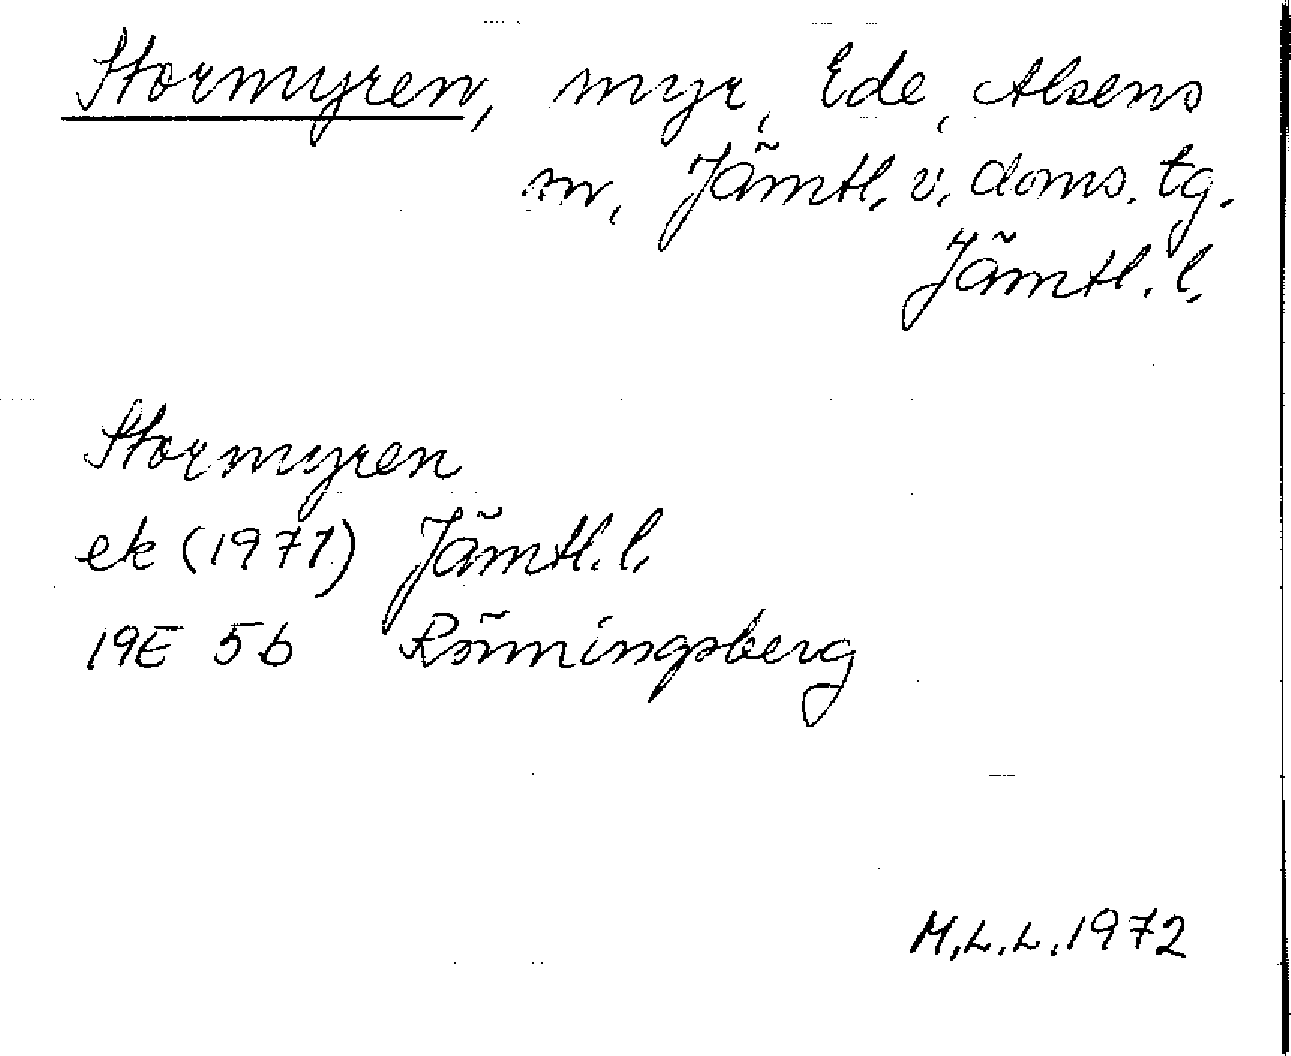 Stormyren, myr, Ede, Alsens
sn, Jämtl. v. doms. tg.
Jämtl. l.
Stormyren
ek (1971) Jämtl. l.
19E 5b Rönningsberg
M.L.L. 1972